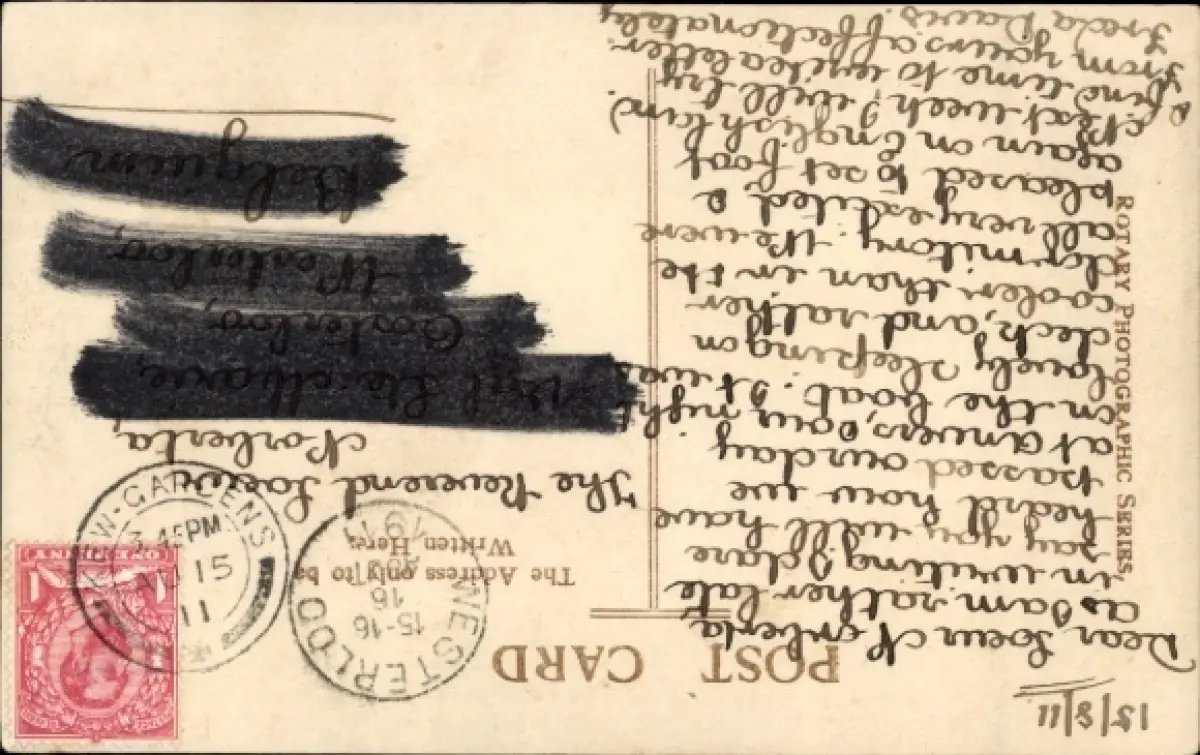 15/8/11
POST CARD
The Address only to be
Written Here.
ROTARY PHOTOGRAPHIC SERIES.
Dear Soeur Norberta
as I am rather late
in writing I dare
say you will have
heard how we
passed our day
at Anvers, & our night
on the boat. It was
lovely sleeping on
deck, and rather
cooler than in the
dormitory. We were
all very excited &
pleased to set foot
again on English land
Next week I will try
& find time to write a letter.
From yours affectionately
Freda Davis.
The Reverend Soeur
Norberta,
Oosterloo,
Westerloo,
Belgium
KEW-GARDENS
3.45PM
AU 15
11
WESTERLOO
15-16
16
1911
ONE PENNY
1 1